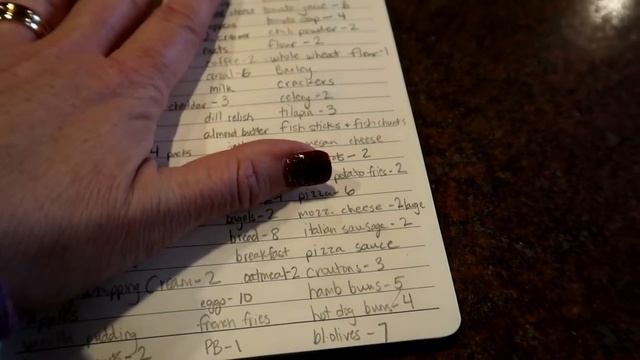 tomato juice - 6
tomato soup - 4
chili powder - 2
flour - 2
coffee - 2 whole wheat flour - 1
cereal - 6 Barley
milk crackers
cheddar - 3 celery - 2
dill relish tilapia - 3
almond butter fish sticks + fish chunks
4 packs cheese
- 2
potato fries - 2
pizza - 6
bagels - 2 mozz. cheese - 2 large
bread - 8 italian sausage - 2
breakfast pizza sauce
whipping cream - 2 oatmeal - 2 croutons - 3
eggs - 10 hamb buns - 5
vanilla pudding french fries hot dog buns - 4
- 2 PB - 1 bl. olives - 7